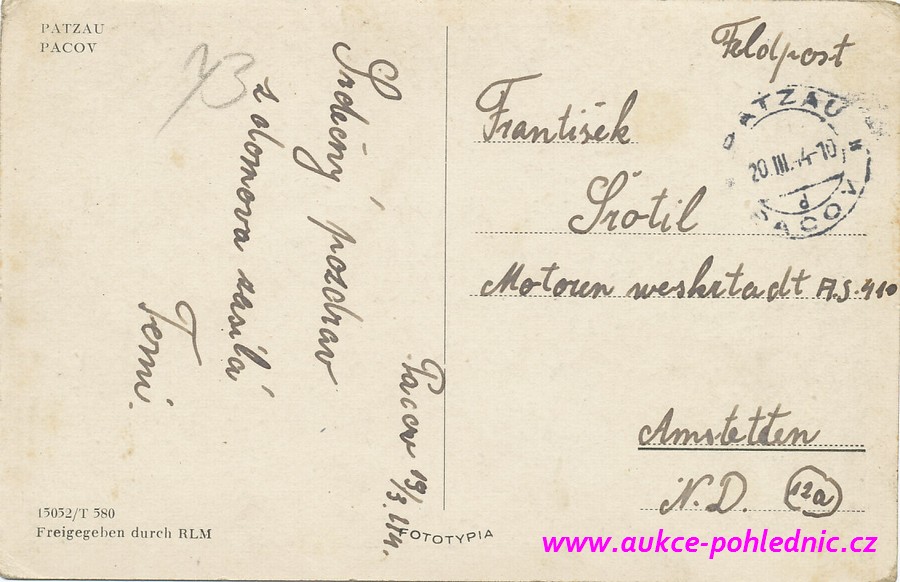 PATZAU
PACOV
73
Srdečný pozdrav
z domova zasílá
Terni.
Pacov 19/3.44.
15052/T 580
Freigegeben durch RLM
FOTOTYPIA
Feldpost
PATZAU
20.III.44-10
d
PACOV
František
Šrotil
Motoren weskrtadt A.S. 410
Amstetten
N.D. 12a
www.aukce-pohlednic.cz